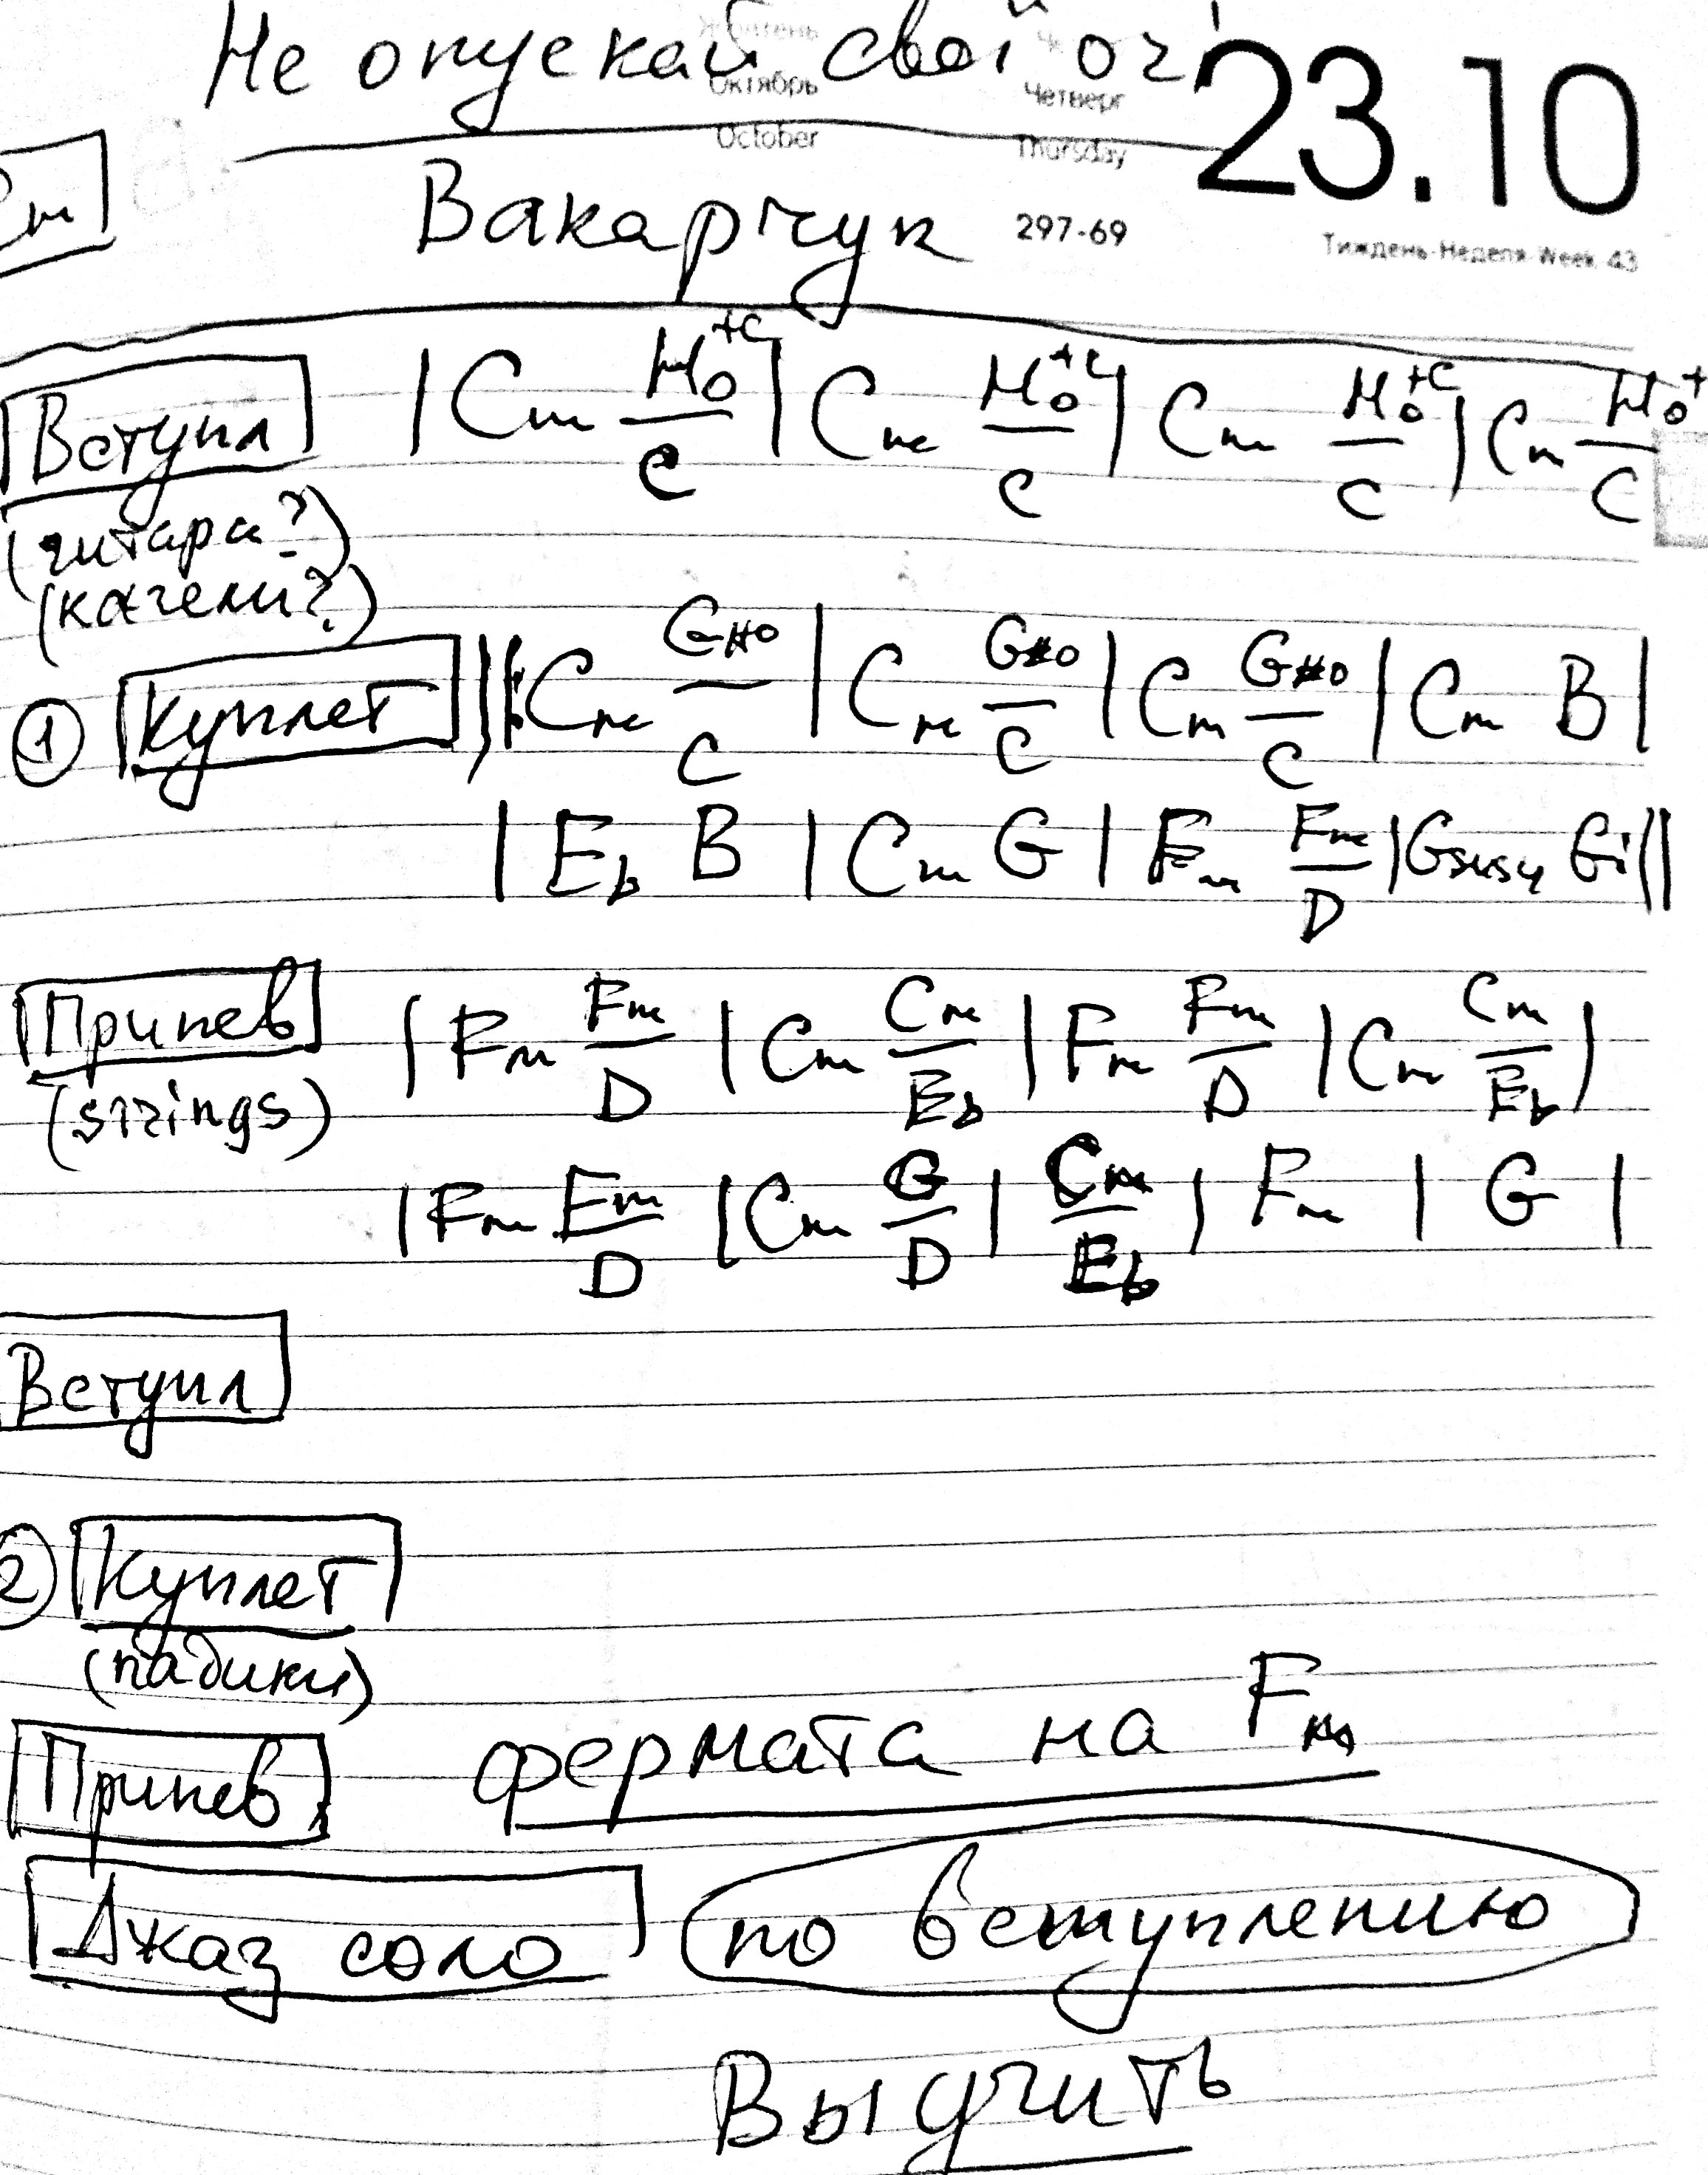 Не опускай свої очі
Жовтень
Октябрь
October
Четверг
Thursday
23.10
297-69
Тиждень-Неделя-Week 43
Cm
Вакарчук
Вступл | Cm Ho+c/C | Cm Ho+c/C | Cm Ho+c/C | Cm Ho+/C
(гитара?)
(качели?)
① Куплет ||: Cm G#o/C | Cm G#o/C | Cm G#o/C | Cm B |
| Eb B | Cm G | Fm Fm/D | Gsus4 G :||
Припев | Fm Fm/D | Cm Cm/Eb | Fm Fm/D | Cm Cm/Eb |
(strings)
| Fm Fm/D | Cm G/D | Cm/Eb | Fm | G |
Вступл
② Куплет
(падики)
Припев фермата на Fm
Джаз соло (по вступлению)
Выучить